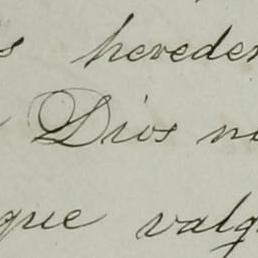 s hereden
Dios n
que valg